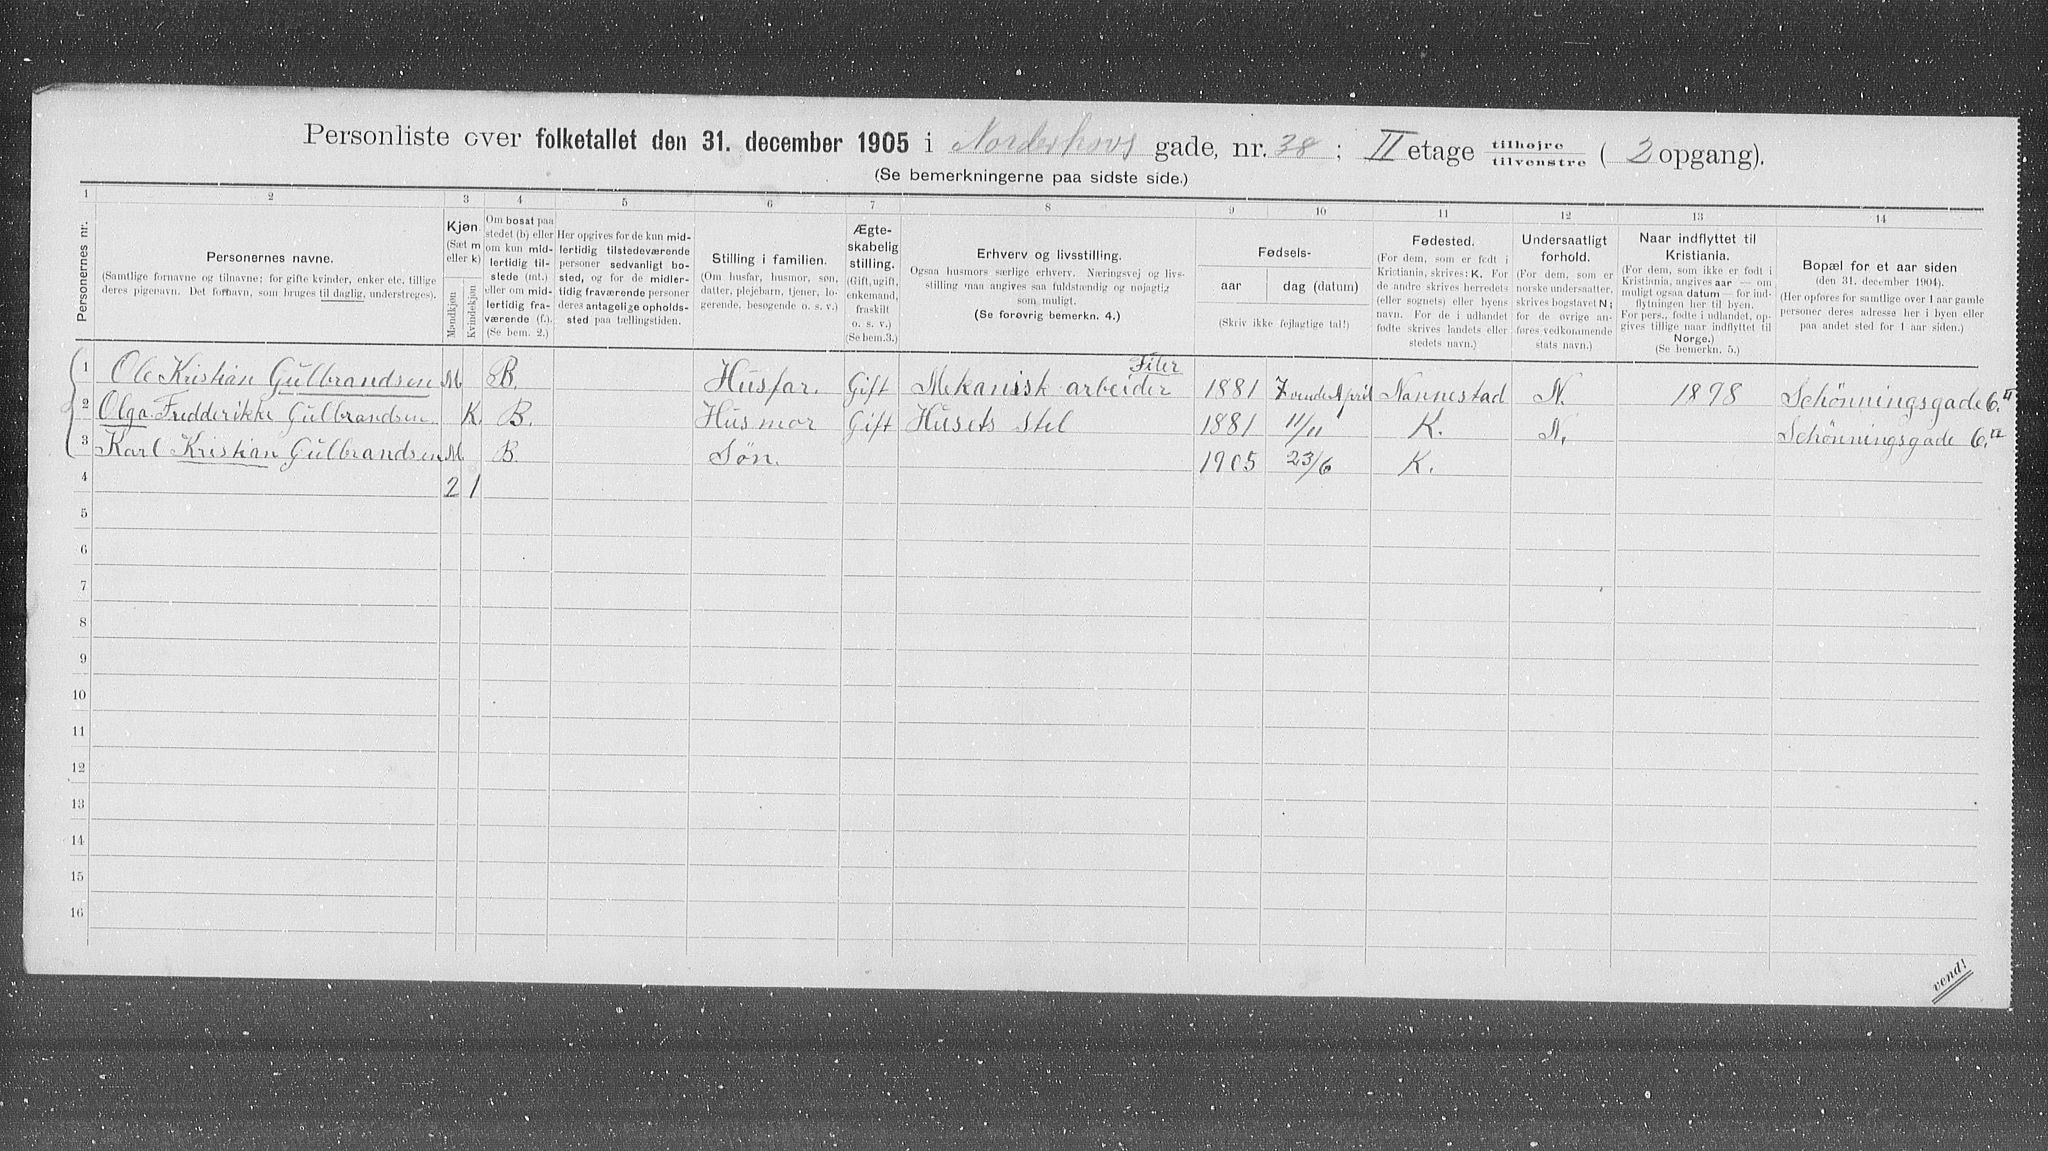 Personliste over folketallet den 31. december 1905 i Norderhovs gade, nr. 38 ; II etage tilhøjre tilvenstre ( 2 opgang).
(Se bemerkningerne paa sidste side.)
1 2 3 4 5 6 7 8 9 10 11 12 13 14
Personernes nr.
Personernes navne.
(Samtlige fornavne og tilnavne; for gifte kvinder, enker etc. tillige
deres pigenavn. Det fornavn, som bruges til daglig, understreges).
Kjøn
(Sæt m
eller k)
Mandkjøn
Kvindekjøn
Om bosat paa
stedet (b) eller
om kun mid-
lertidig til-
stede (mt.)
eller om mid-
lertidig fra-
værende (f.).
(Se bem. 2.)
Her opgives for de kun mid-
lertidig tilstedeværende
personer sedvanligt bo-
sted, og for de midler-
tidig fraværende personer
deres antagelige opholds-
sted paa tællingstiden.
Stilling i familien.
(Om husfar, husmor, søn,
datter, plejebarn, tjener, lo-
gerende, besøgende o. s. v.)
Ægte-
skabelig
stilling.
(Gift, ugift,
enkemand,
fraskilt
o. s. v.)
(Se bem.3.)
Erhverv og livsstilling.
Ogsaa husmors særlige erhverv. Næringsvej og livs-
stilling maa angives saa fuldstændig og nøjagtig
som muligt.
(Se forøvrig bemerkn. 4.)
Fødsels-
aar
dag (datum)
(Skriv ikke fejlagtige tal!)
Fødested.
(For dem, som er født i
Kristiania, skrives: K. For
de andre skrives herredets
(eller sognets) eller byens
navn. For de i udlandet
fødte skrives landets eller
stedets navn.)
Undersaatligt
forhold.
(For dem, som er
norske undersaatter,
skrives bogstavet N;
for de øvrige an-
føres vedkommende
stats navn.)
Naar indflyttet til
Kristiania.
(For dem, som ikke er født i
Kristiania, angives aar — om
muligt ogsaa datum — for ind-
flytningen her til byen.
For pers., fødte i udlandet, op-
gives tillige naar indflyttet til
Norge.)
(Se bemerkn. 5.)
Bopæl for et aar siden
(den 31. december 1904).
(Her opføres for samtlige over 1 aar gamle
personer deres adresse her i byen eller
paa andet sted for 1 aar siden.)
Filer
1 Ole Kristian Gulbrandsen M B. Husfar. Gift Mekanisk arbeider 1881 April Nannestad N. 1898 Schønningsgade 6. II
2 Olga Fredderikke Gulbrandsen K. B. Husmor Gift Husets stel 1881 11/11 K. N. Schønningsgade 6. II
3 Karl Kristian Gulbrandsen M B. Søn. 1905 23/6 K.
4 2 1
5
6
7
8
9
10
11
12
13
14
15
16
vend!